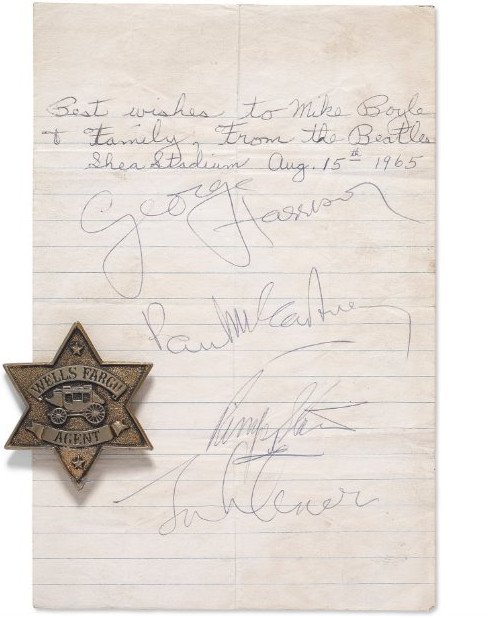 Best wishes to Mike Boyle
& Family, From the Beatles
Shea Stadium Aug. 15th 1965
George Harrison
Paul McCartney
Ringo Starr
WELLS FARGO
AGENT